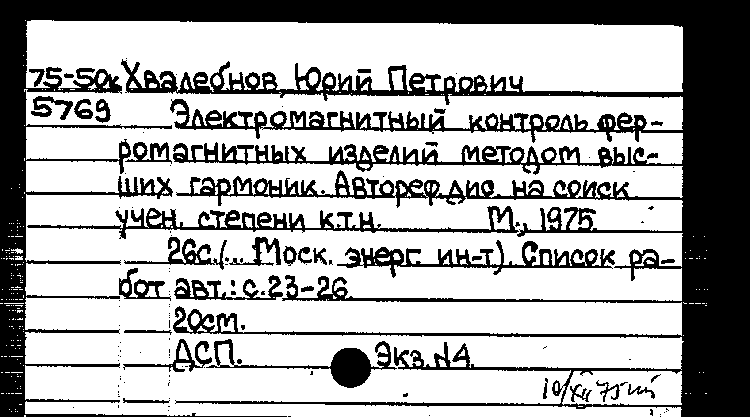 75-50к Хвалебнов, Юрий Петрович
5769 Электромагнитный контроль фер-
ромагнитных изделий методом выс-
ших гармоник. Автореф. дис. на соиск
учен. степени к.т.н. М., 1975.
26с. (... Моск. энерг. ин-т). Список ра-
бот авт.: с. 23-26.
20см.
ДСП. Экз. N4.
10/XII 75